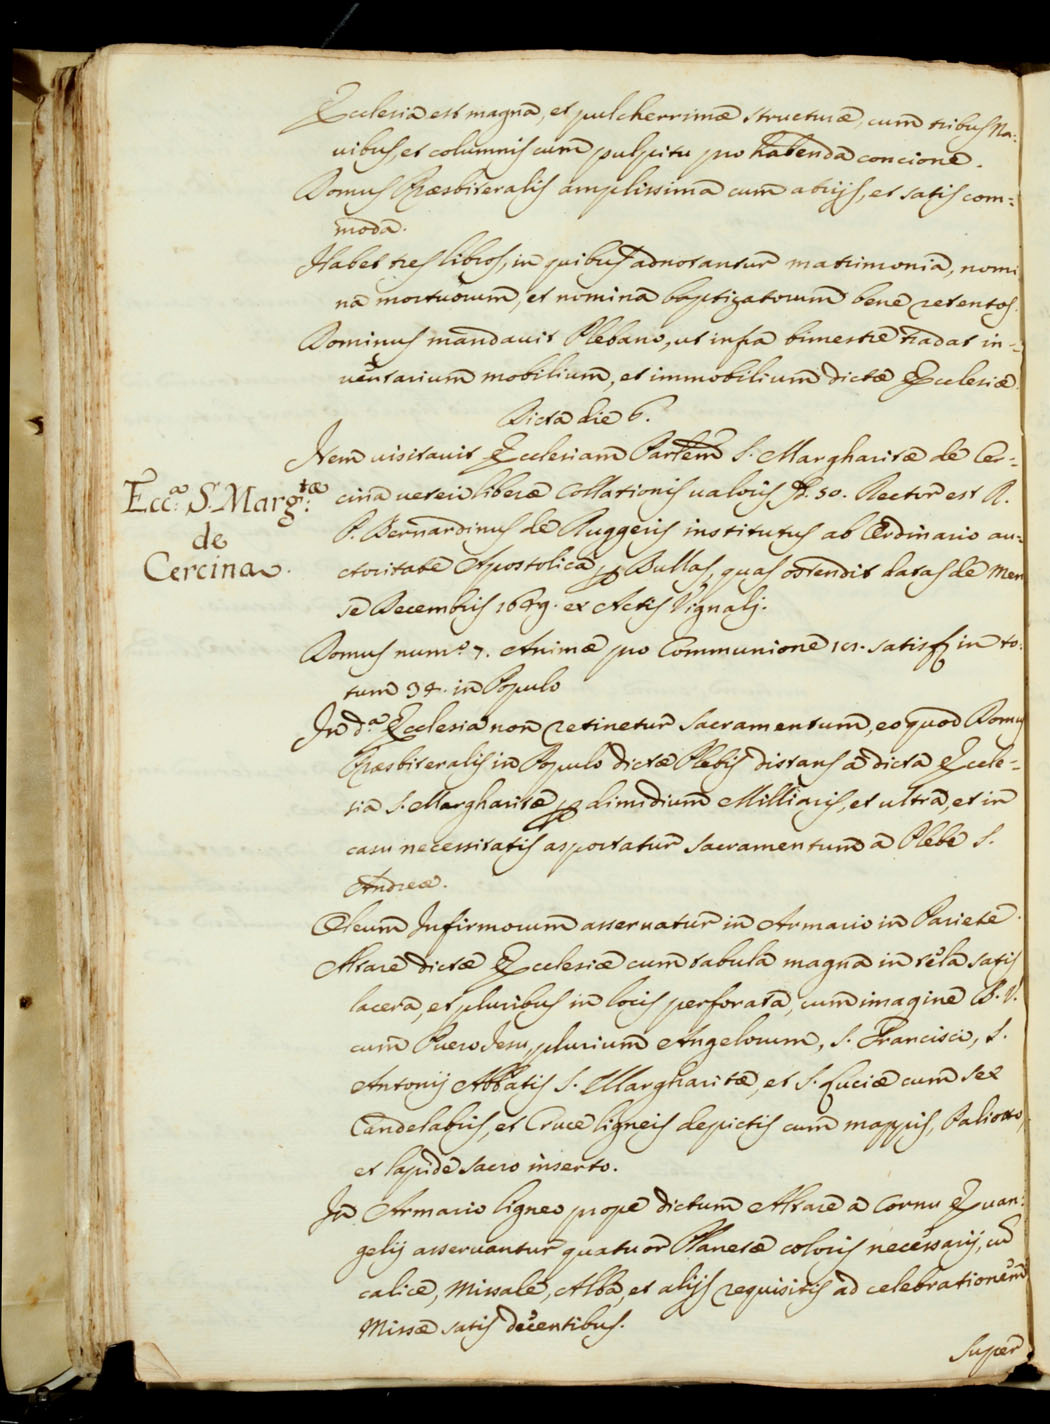 Ecclesia est magna, et pulcherrimæ structuræ, cum tribus Na:
uibus, et columnis cum pulpitu pro habenda concione.
Domus Præsbiteralis amplissima cum atrijs, et satis com=
moda.
Habet tres libros, in quibus adnotantur matrimonia, nomi
na mortuorum, et nomina baptizatorum bene retentos.
Dominus mandauit Plebano, ut infra bimestre tradat in=
uentarium mobilium, et immobilium dictæ Ecclesiæ
Dicta die 6.
Item visitauit Ecclesiam S. Margharitæ de Cer=
Ecc.ª S. Marg.tæ
de
Cercina.
cina liberæ Collationis ualoris 50. Rector est R.
P. Bernardinus de Ruggeris institutus ab Ordinario au=
ctoritate Apostolica Bullas, quas ostendit datas de Men
se Decembris ex Actis Vignalj.
Domus num.º 7. Animæ pro Communione satisf. in to:
tum 34. in Populo
In d.ª Ecclesia non retinetur Sacramentum, eo quod Domus
Præsbiteralis in Populo dictæ Plebis distans a dicta Eccle=
sia S. Margharitæ dimidium Milliaris, et ultra, et in
casu necessitatis asportatur Sacramentum a Plebe S.
Andreæ.
Oleum Infirmorum asseruatur in Armario in Pariete.
Altare dictæ Ecclesiæ cum tabula magna in tela satis
lacera, et pluribus in locis perforata, cum imagine B. V.
cum Puero Jesu, plurium Angelorum, S. Francisci, S.
Antonij Abbatis S. Margharitæ, et S. Luciæ cum sex
Candelabris, et Cruce ligneis depictis cum mappis, Paliotto,
et lapide sacro inserto.
In Armario ligneo prope dictum Altare a Cornu Euan:
gelij asseruantur quatuor Planetæ coloris necessarij, cũ
calice, Missale, Alba, et alijs requisitis ad celebrationem
Missæ satis decentibus.
Super